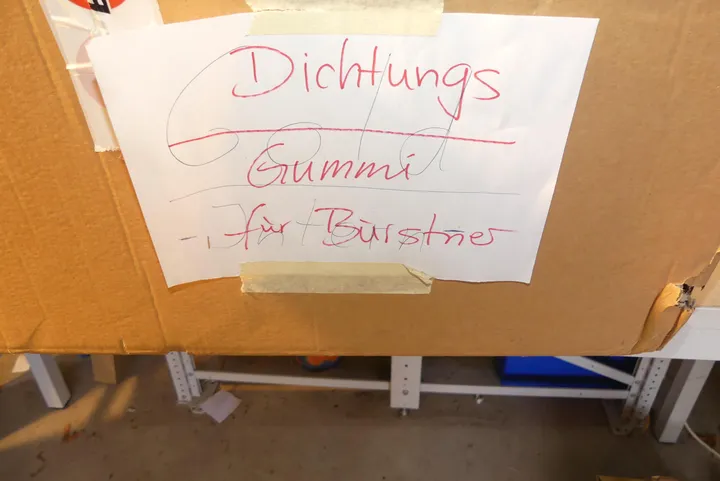 Dichtungs
Gummi
für Bürstner